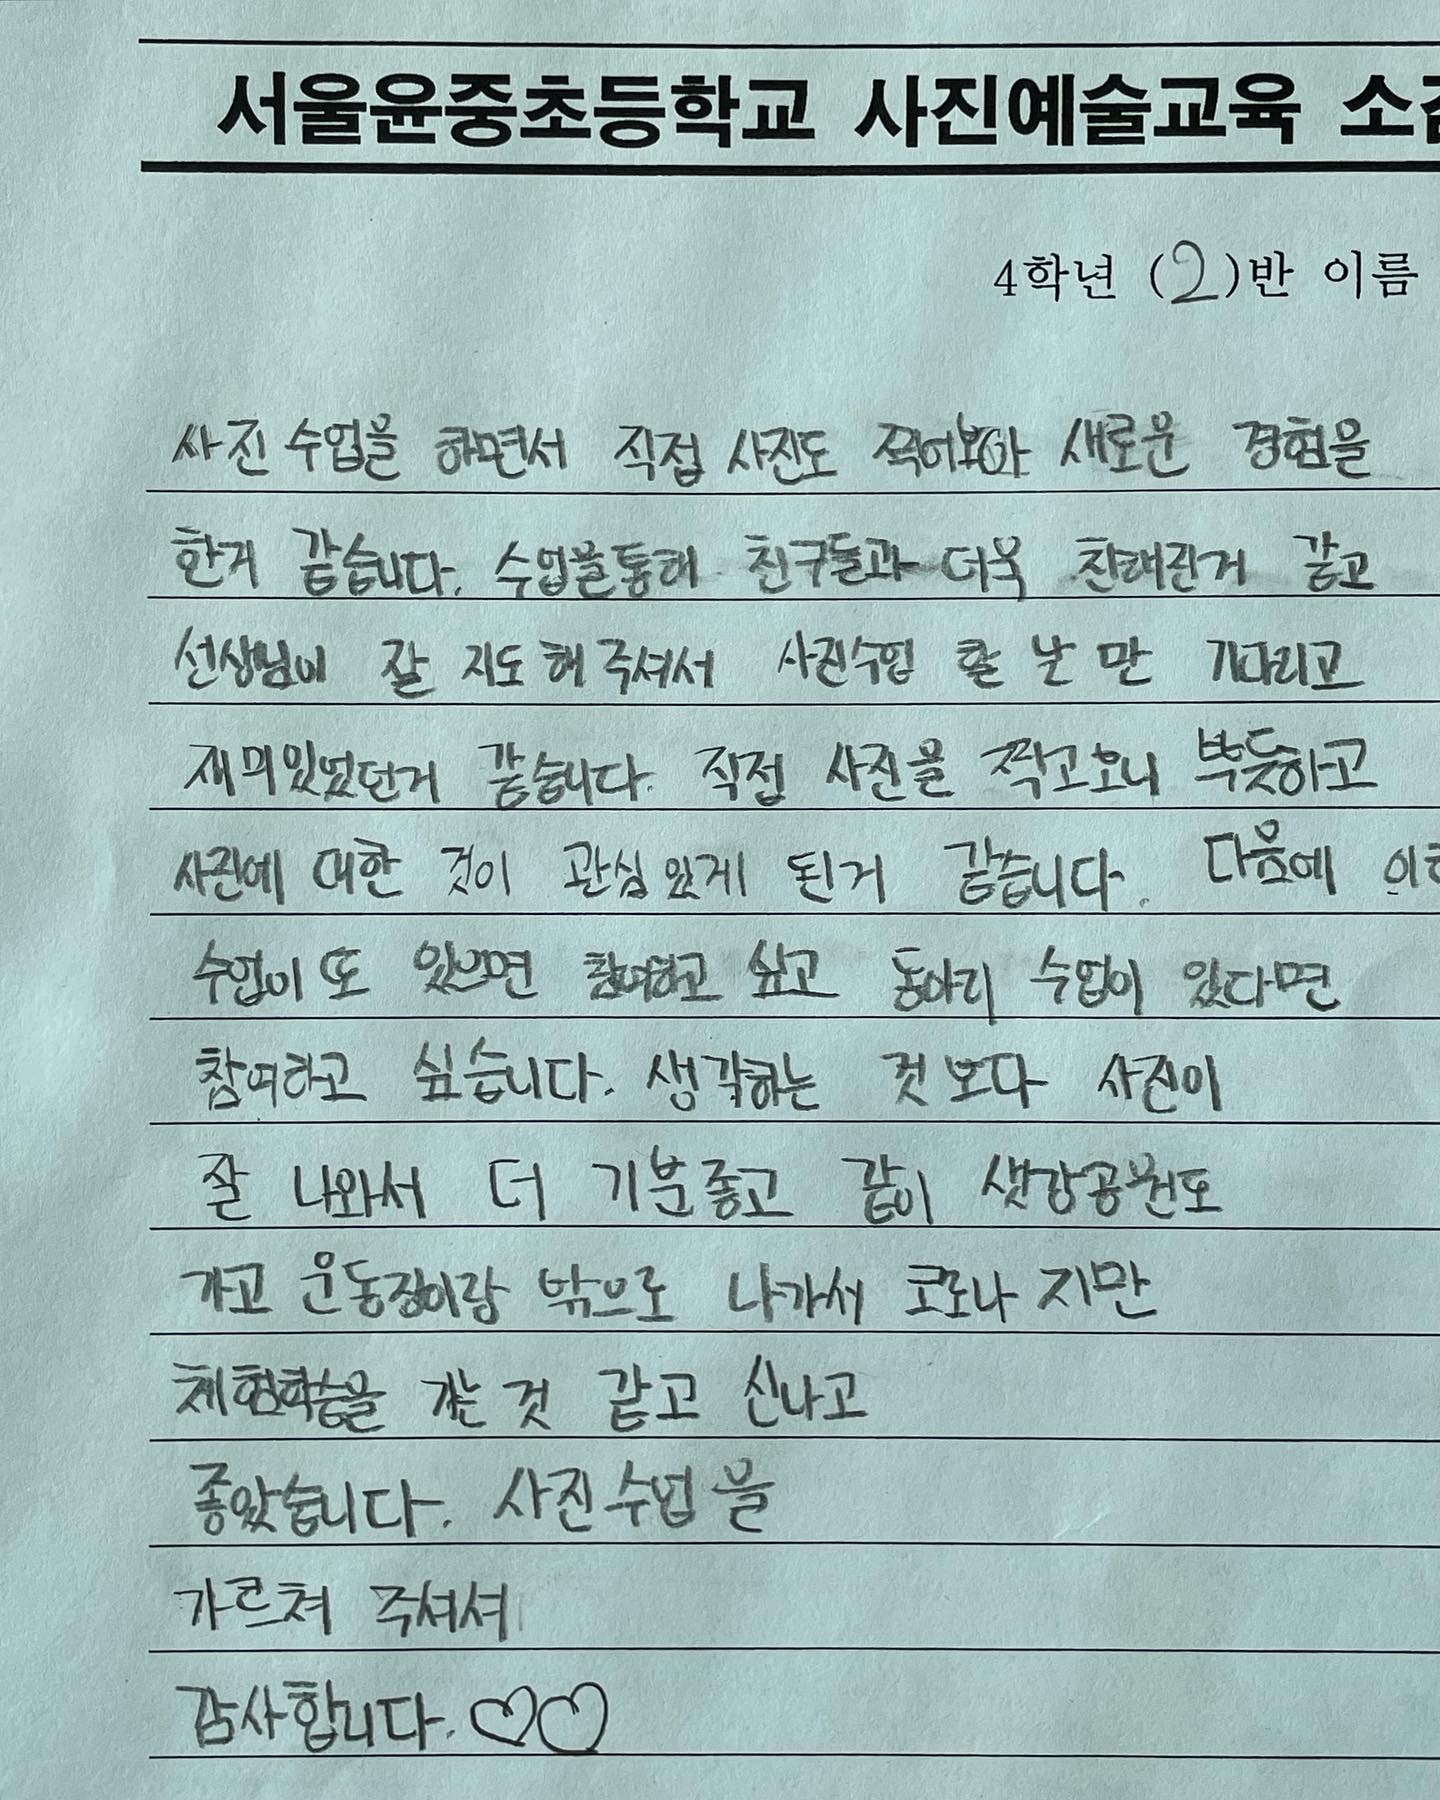 서울윤중초등학교 사진예술교육 소감
4학년 (2)반 이름
사진 수업을 하면서 직접 사진도 찍어보아 새로운 경험을
한거 같습니다. 수업을통해 친구들과 더욱 친해진거 같고
선생님이 잘 지도해주셔서 사진수업 할 날 만 기다리고
재미있었던거 같습니다. 직접 사진을 찍고오니 뿌듯하고
사진에 대한 것이 관심있게 된거 같습니다. 다음에 이
수업이 또 있으면 참여하고 싶고 동아리 수업이 있다면
참여하고 싶습니다. 생각하는 것보다 사진이
잘 나와서 더 기분좋고 같이 샛강공원도
가고 운동장이랑 밖으로 나가서 코로나 지만
체험학습을 가는 것 같고 신나고
좋았습니다. 사진수업을
가르쳐 주셔셔
감사합니다.♡♡